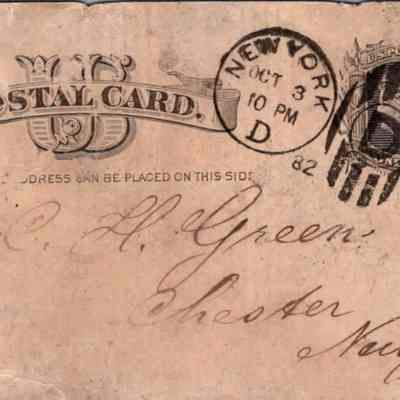 US
OSTAL CARD.
NEW YORK
OCT 3
10 PM
D
82
DDRESS CAN BE PLACED ON THIS SIDE
C. H. Green
Chester